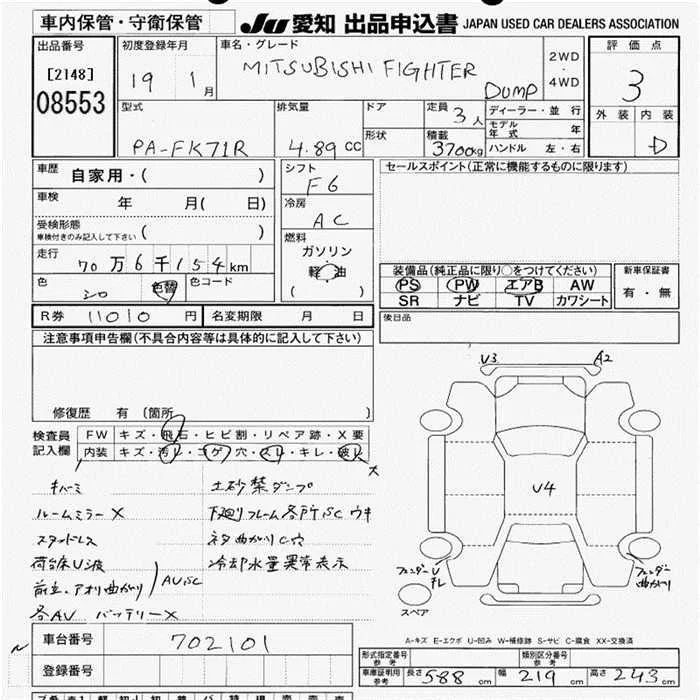 車内保管・守衛保管
JU 愛知 出品申込書 JAPAN USED CAR DEALERS ASSOCIATION
出品番号
[2148]
08553
初度登録年月
19 1月
車名・グレード
MITSUBISHI FIGHTER
DUMP
2WD
・
4WD
評価点
3
外装 内装
D
型式
PA-FK71R
排気量
4.89 CC
ドア
形状
定員 3人
積載 3700kg
ディーラー・並行
モデル年式 年
ハンドル 左・右
車歴 自家用・( )
車検 年 月( 日)
受検形態
車検付きのみ記入して下さい ( )
走行 70万6千154km
色 シロ 色替 色コード
シフト F6
冷房 AC
燃料
ガソリン
軽油
( )
セールスポイント(正常に機能するものに限ります)
装備品(純正品に限り○をつけてください)
PS PW エアB AW
SR ナビ TV カワシート
新車保証書
有・無
後日品
R券 11010 円 名変期限 月 日
注意事項申告欄(不具合内容等は具体的に記入して下さい)
修復歴 有 (箇所 )
検査員記入欄
FW キズ・飛石・ヒビ割・リペア跡・X要
内装 キズ・汚レ・コゲ穴・スレ・キレ・破レ 大
キバミ
ルームミラーX
スタッドレス
荷台床U波
前立、アオリ曲がり AUSC
各AU バッテリーX
土砂禁ダンプ
下廻りフレーム各所SC ウキ
ネタ曲がりC穴
冷却水量異常表示
U3 A2
U4
フェンダーU キレ
フェンダー曲がり
スペア
A-キズ E-エクボ U-凹み W-補修跡 S-サビ C-腐食 XX-交換済
車台番号 702101
登録番号
形式指定番号 参考
類別区分番号 参考
車庫証明用 参考 長さ588 cm 幅219 cm 高さ243 cm